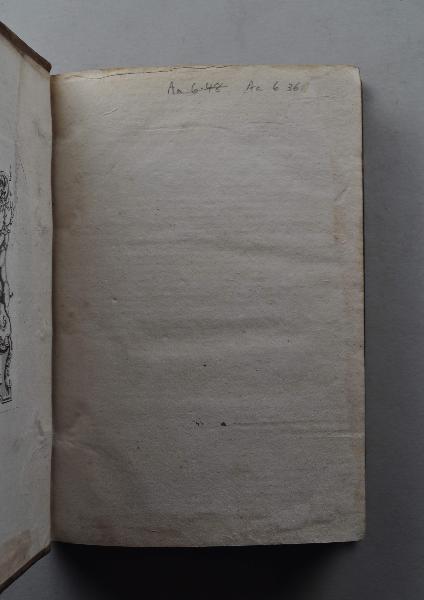 Aa 6 48 Aa 6 36